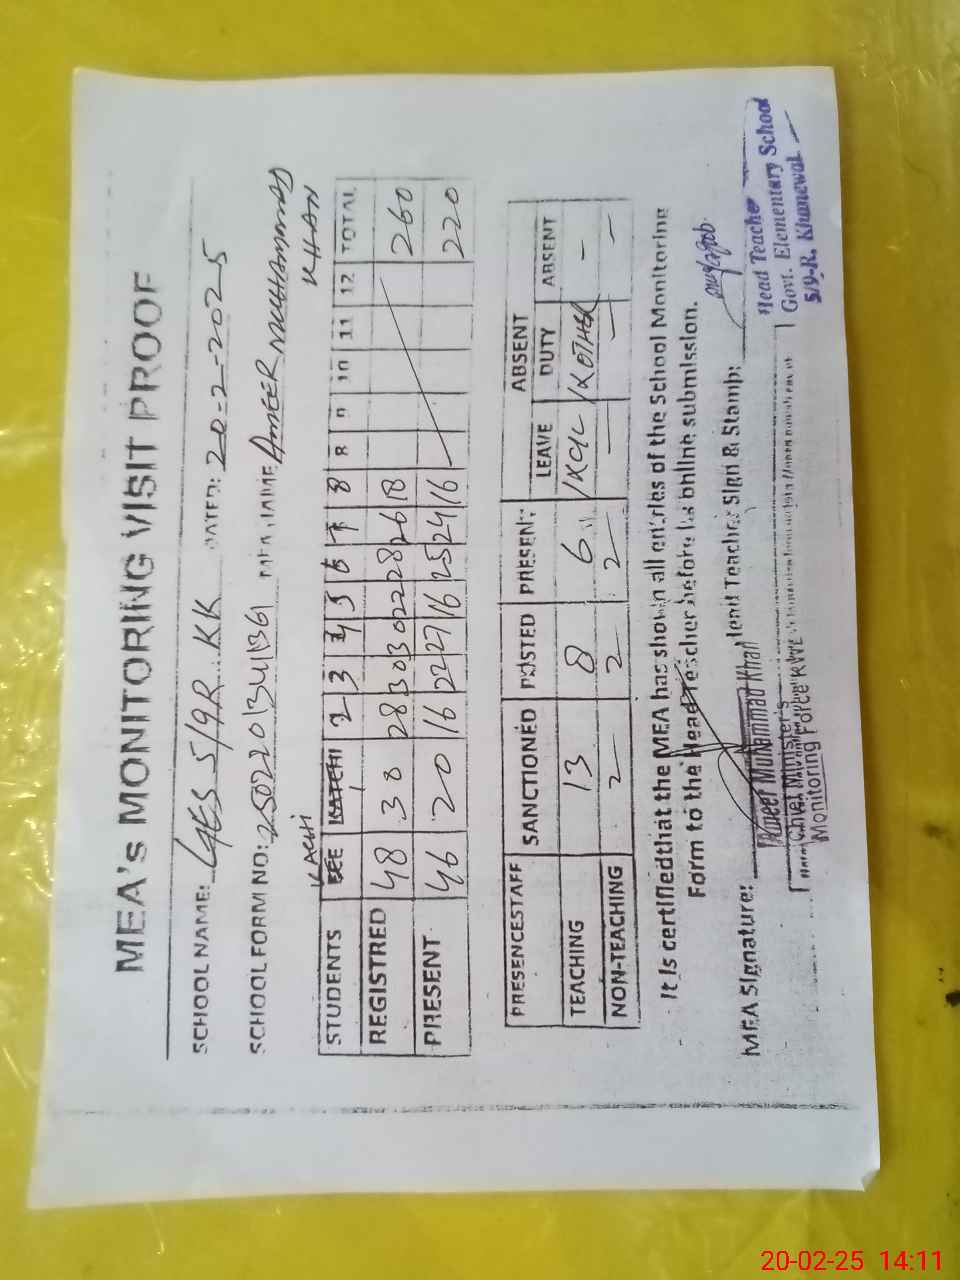 MEA's MONITORING VISIT PROOF
SCHOOL NAME: GES 5/9R KK DATED: 20-2-2025
SCHOOL FORM NO: MEA NAME AMEER MUHAMMAD
KHAN
KACHI
STUDENTS ECE KATCHI 1 2 3 4 5 6 7 8 9 10 11 12 TOTAL
REGISTRED 48 38 28 30 30 22 28 26 18 260
PRESENT 46 20 16 22 27 16 25 24 16 220
PRESENCESTAFF SANCTIONED POSTED PRESENT ABSENT
LEAVE DUTY ABSENT
TEACHING 13 8 6 1XCL 1XOTHER -
NON-TEACHING 2 2 2 — — —
It is certifiedthat the MEA has shown all entries of the School Monitoring
Form to the Head Teacher before its online submission.
MEA Signature: Head Teacher Sign & Stamp:
Ameer Muhammad Khan
Chief Minister's
Monitoring Force
Head Teacher
Govt. Elementary School
5/9-R. Khanewal
20-02-25 14:11